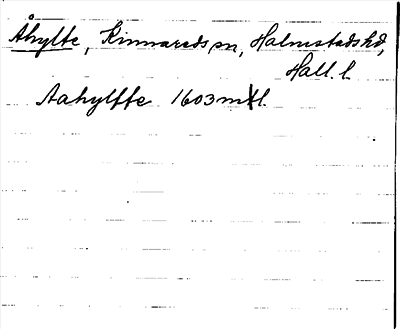 Åhylte, Kinnareds sn, Halmstads hd,
Hall. l.
Aahylffe 1603 mtl.